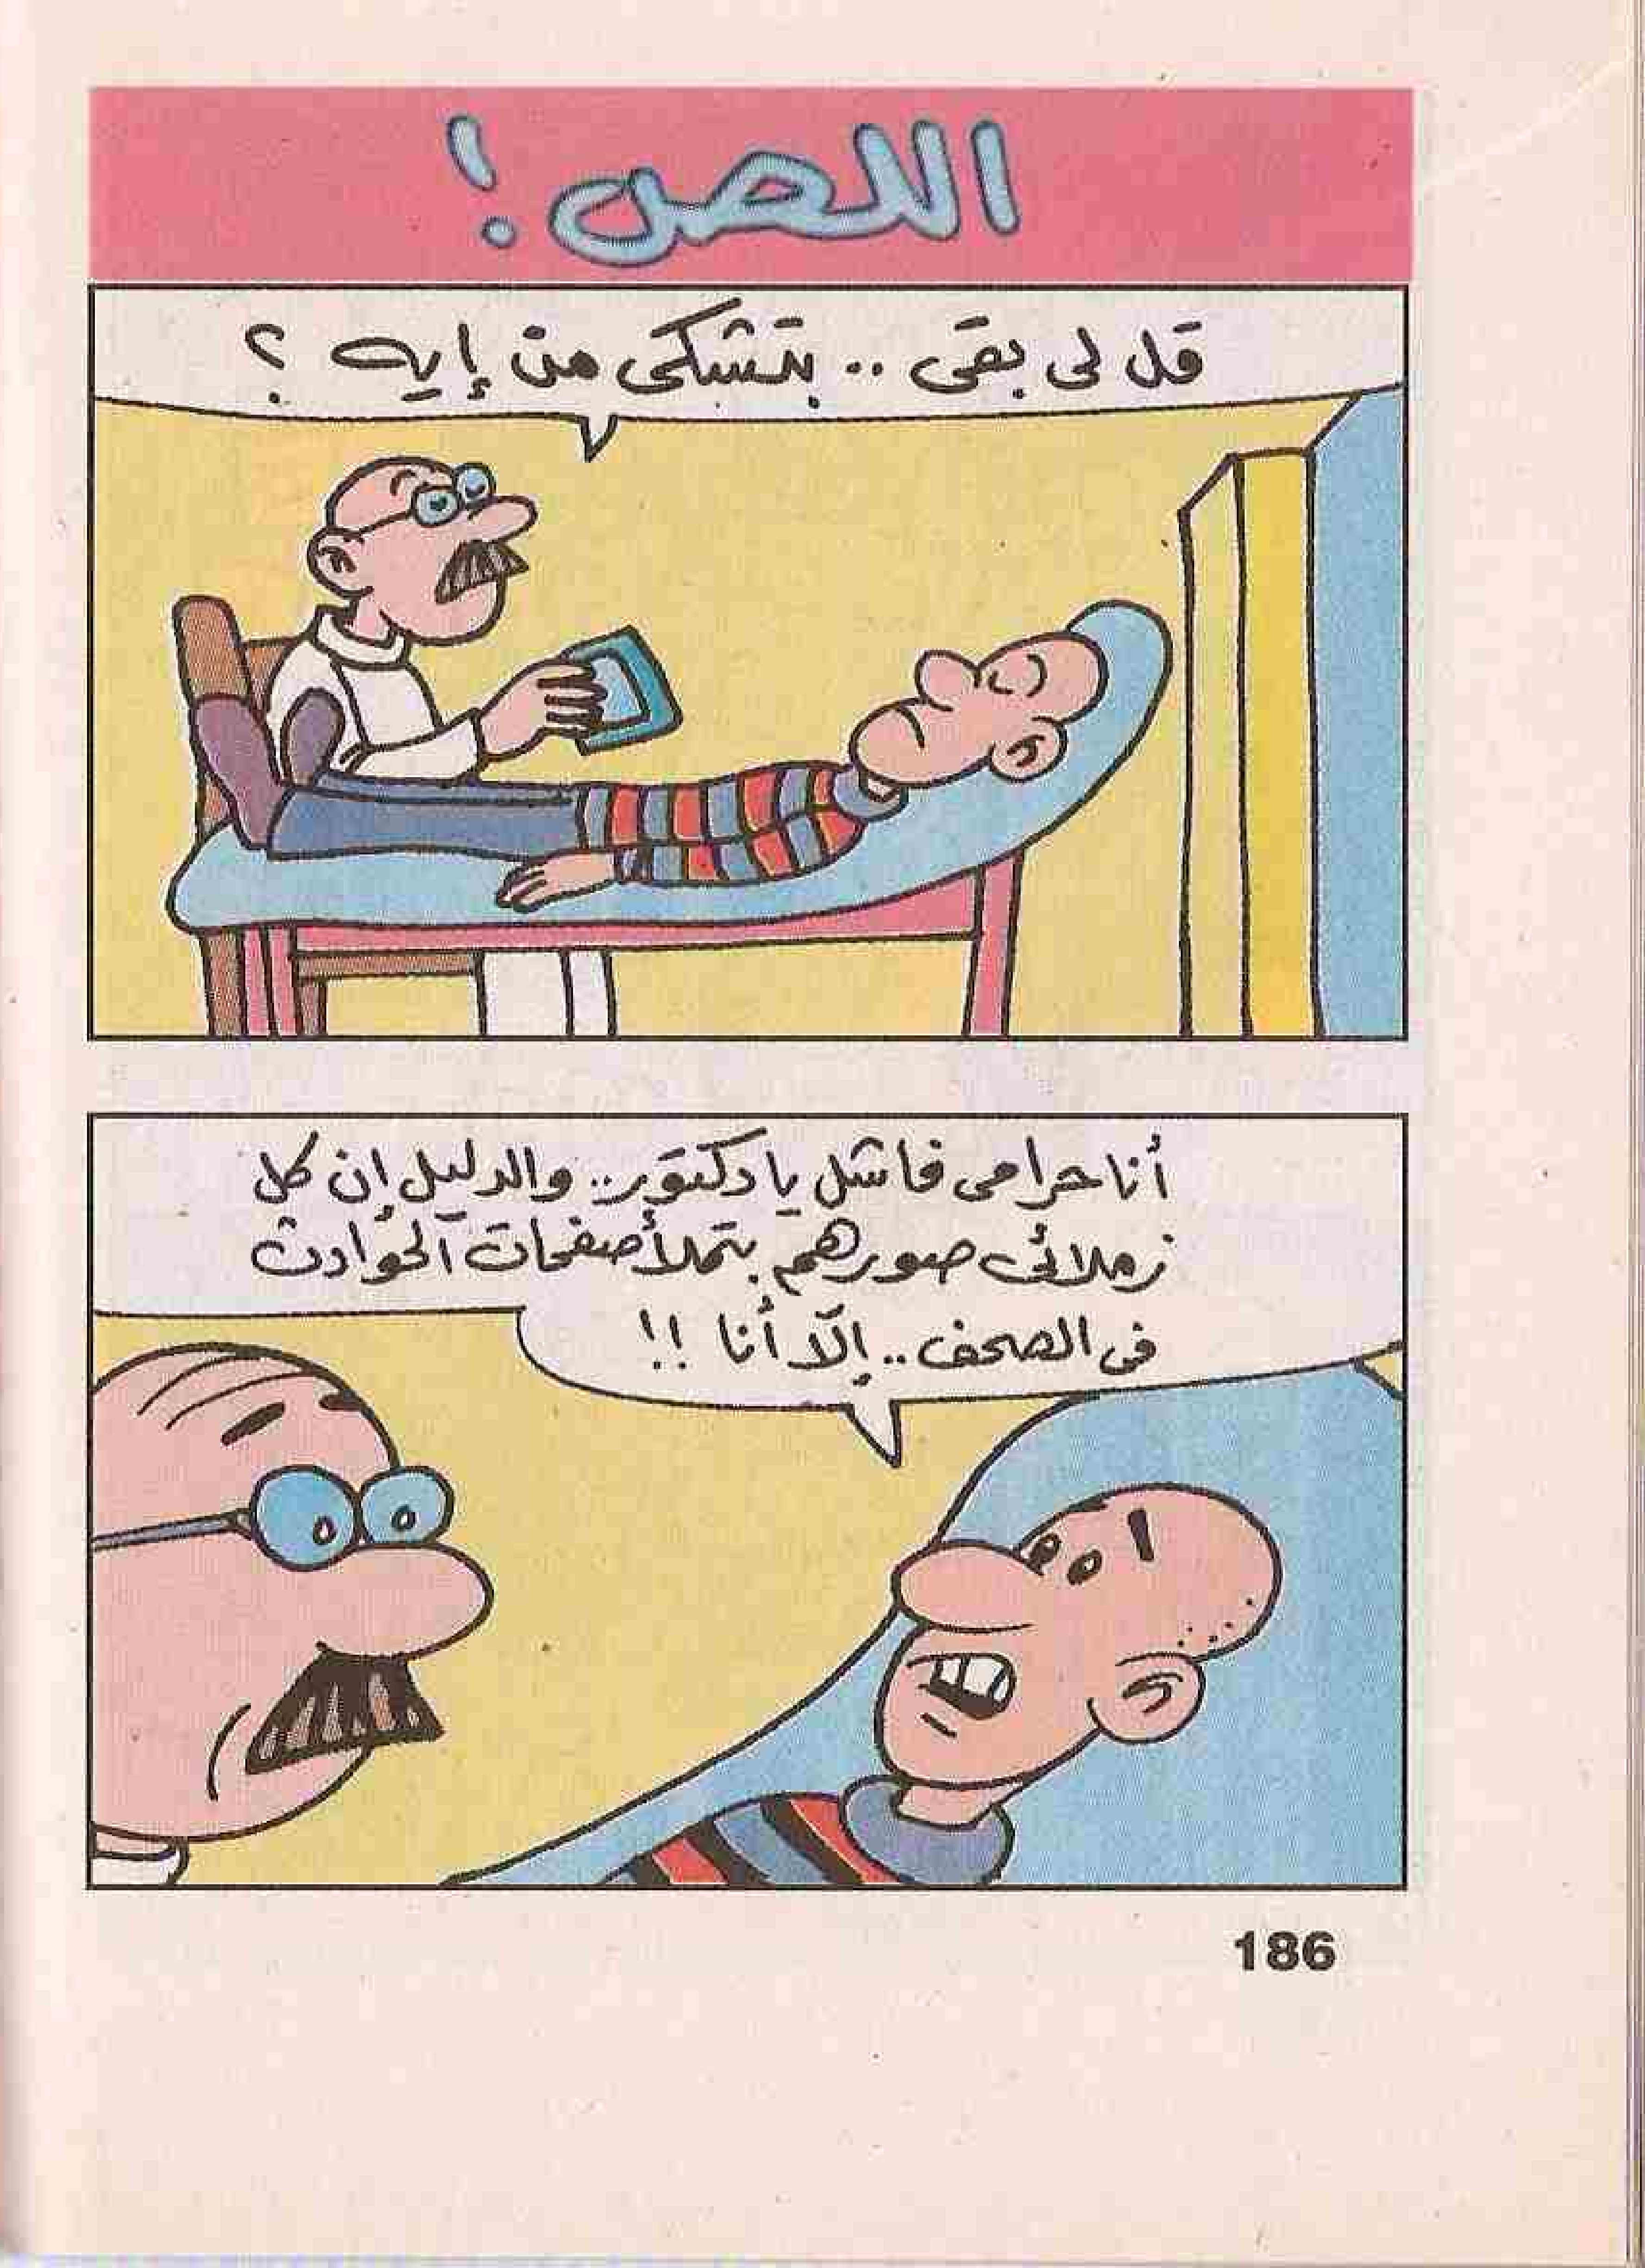 اللص !
قل لى بقى .. بتشكى من إيه ؟
أنا حرامى فاشل يا دكتور.. والدليل إن كل
زملائى صورهم بتملأ صفحات الحوادث
فى الصحف.. إلّا أنا !!
186